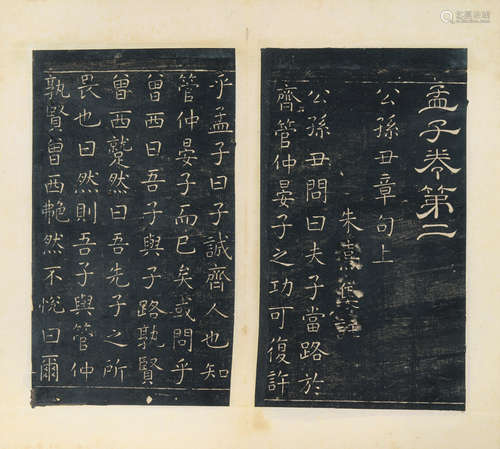 孟子卷第二
公孫丑章句上
朱熹集註
公孫丑問曰夫子當路於
齊管仲晏子之功可復許
乎孟子曰子誠齊人也知
管仲晏子而已矣或問乎
曾西曰吾子與子路孰賢
曾西蹵然曰吾先子之所
畏也曰然則吾子與管仲
孰賢曾西艴然不悅曰爾